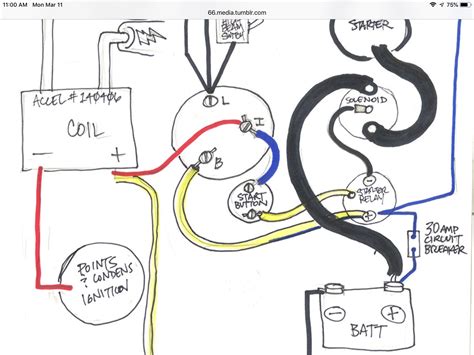 11:00 AM Mon Mar 11
66.media.tumblr.com
75%
BEAM
SWITCH
STARTER
ACCEL # 140406
COIL
- +
L
I
B
SOLENOID
START
BUTTON
-
STARTER
RELAY
+
30 AMP
CIRCUIT
BREAKER
POINTS
? CONDENS
IGNITION
- +
BATT